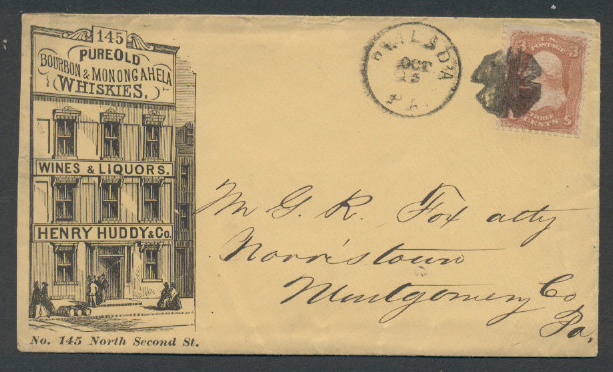 145
PURE OLD
BOURBON & MONONGAHELA
WHISKIES.
WINES & LIQUORS.
HENRY HUDDY & Co.
No. 145 North Second St.
PHILAD'A
OCT
15
PA.
3 U.S. 3
POSTAGE
THREE
CENTS
Mr G. R. Fox atty
Norristown
Montgomery Co
Pa.